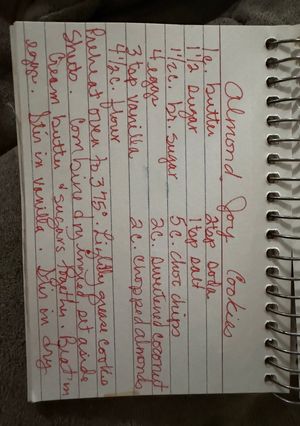 Almond Joy Cookies
1 c. butter 2 tsp soda
1 1/2 sugar 1 tsp salt
1 1/2 c. br. sugar 5 c. choc chips
4 eggs 2 c. sweetened coconut
3 tsp vanilla 2 c. chopped almonds
4 1/2 c. flour
Preheat oven to 375° Lightly grease cookie
sheets. Combine dry ingred set aside
Cream butter & sugars together. Beat in
eggs. Stir in vanilla. Stir in dry